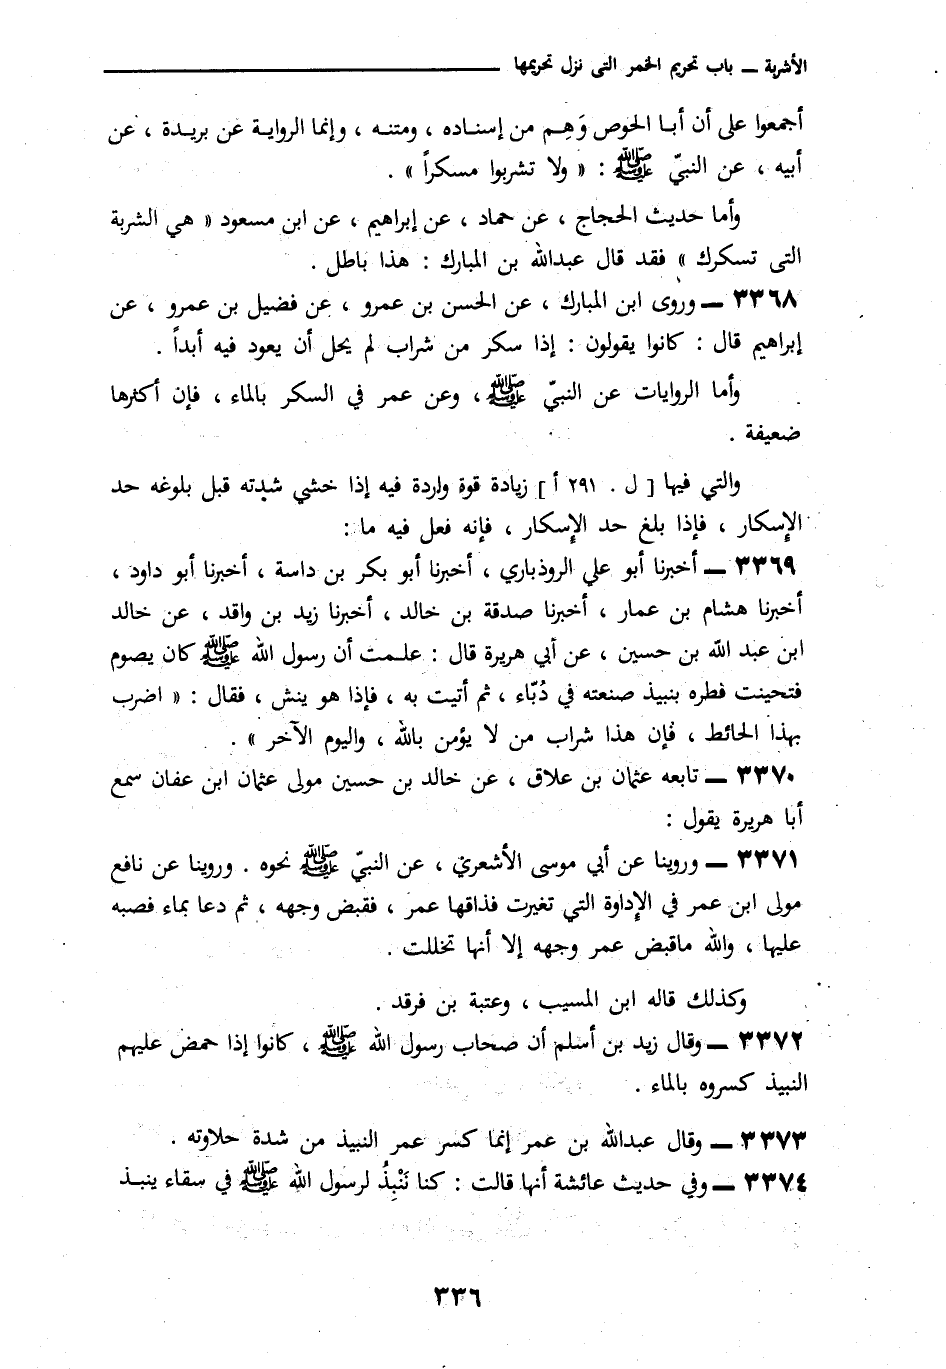 الأشربة ــ باب تحريم الخمر التى نزل تحريمها
أجمعوا على أن أبا الحوص وَهِم من إسناده ، ومتنه ، وإنما الرواية عن بريدة ، عن
أبيه ، عن النبيّ ﷺ : « ولا تشربوا مسكراً » .
وأما حديث الحجاج ، عن حماد ، عن إبراهيم ، عن ابن مسعود « هي الشربة
التى تسكرك » فقد قال عبدالله بن المبارك : هذا باطل .
٣٣٦٨ ــ وروى ابن المبارك ، عن الحسن بن عمرو ، عن فضيل بن عمرو ، عن
إبراهيم قال : كانوا يقولون : إذا سكر من شراب لم يحل أن يعود فيه أبداً .
وأما الروايات عن النبيّ ﷺ ، وعن عمر في السكر بالماء ، فإن أكثرها
ضعيفة .
والتي فيها [ ل . ٢٩١ أ ] زيادة قوة واردة فيه إذا خشي شدته قبل بلوغه حد
الإسكار ، فإذا بلغ حد الإسكار ، فإنه فعل فيه ما :
٣٣٦٩ ــ أخبرنا أبو علي الروذباري ، أخبرنا أبو بكر بن داسة ، أخبرنا أبو داود ،
أخبرنا هشام بن عمار ، أخبرنا صدقة بن خالد ، أخبرنا زيد بن واقد ، عن خالد
ابن عبد الله بن حسين ، عن أبي هريرة قال : علمت أن رسول الله ﷺ كان يصوم
فتحينت فطره بنبيذ صنعته في دُبّاء ، ثم أتيت به ، فإذا هو ينش ، فقال : « اضرب
بهذا الحائط ، فإن هذا شراب من لا يؤمن بالله ، واليوم الآخر » .
٣٣٧٠ ــ تابعه عثمان بن علاق ، عن خالد بن حسين مولى عثمان ابن عفان سمع
أبا هريرة يقول :
٣٣٧١ ــ وروينا عن أبي موسى الأشعري ، عن النبيّ ﷺ نحوه . وروينا عن نافع
مولى ابن عمر في الإداوة التي تغيرت فذاقها عمر ، فقبض وجهه ، ثم دعا بماء فصبه
عليها ، والله ماقبض عمر وجهه إلا أنها تخللت .
وكذلك قاله ابن المسيب ، وعتبة بن فرقد .
٣٣٧٢ ــ وقال زيد بن أسلم أن صحاب رسول الله ﷺ ، كانوا إذا حمض عليهم
النبيذ كسروه بالماء .
٣٣٧٣ ــ وقال عبدالله بن عمر إنما كسر عمر النبيذ من شدة حلاوته .
٣٣٧٤ ــ وفي حديث عائشة أنها قالت : كنا نَنْبِذُ لرسول الله ﷺ في سقاء ينبذ
٣٣٦